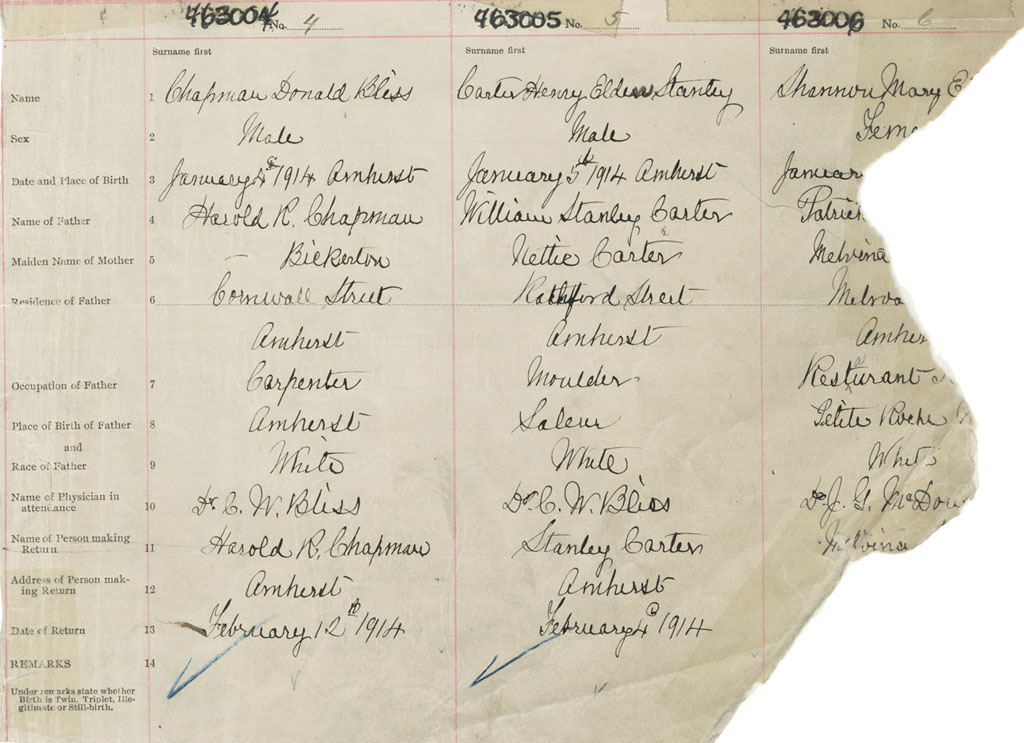 463004 No. 4 463005 No. 5 463006 No. 6
Surname first Surname first Surname first
Name 1 Chapman Donald Bliss Carter Henry Elden Stanley Shannon Mary E
Sex 2 Male Male Fema
Date and Place of Birth 3 January 4th 1914 Amherst January 5th 1914 Amherst Januar
Name of Father 4 Harold R. Chapman William Stanley Carter Patrick
Maiden Name of Mother 5 — Bickerton Nettie Carter Melvina
Residence of Father 6 Cornwall Street Ratchford Street Melro
Amherst Amherst Amher
Occupation of Father 7 Carpenter Moulder Resturant
Place of Birth of Father 8 Amherst Salem Petite Roche
and
Race of Father 9 White White White
Name of Physician in
attendance 10 Dr. C. W. Bliss Dr. C. W. Bliss Dr J. G. McDou
Name of Person making
Return 11 Harold R. Chapman Stanley Carter Melvina
Address of Person mak-
ing Return 12 Amherst Amherst
Date of Return 13 February 12th 1914 February 4th 1914
REMARKS 14
Under remarks state whether
Birth is Twin, Triplet, Ille-
gitimate or Still-birth.